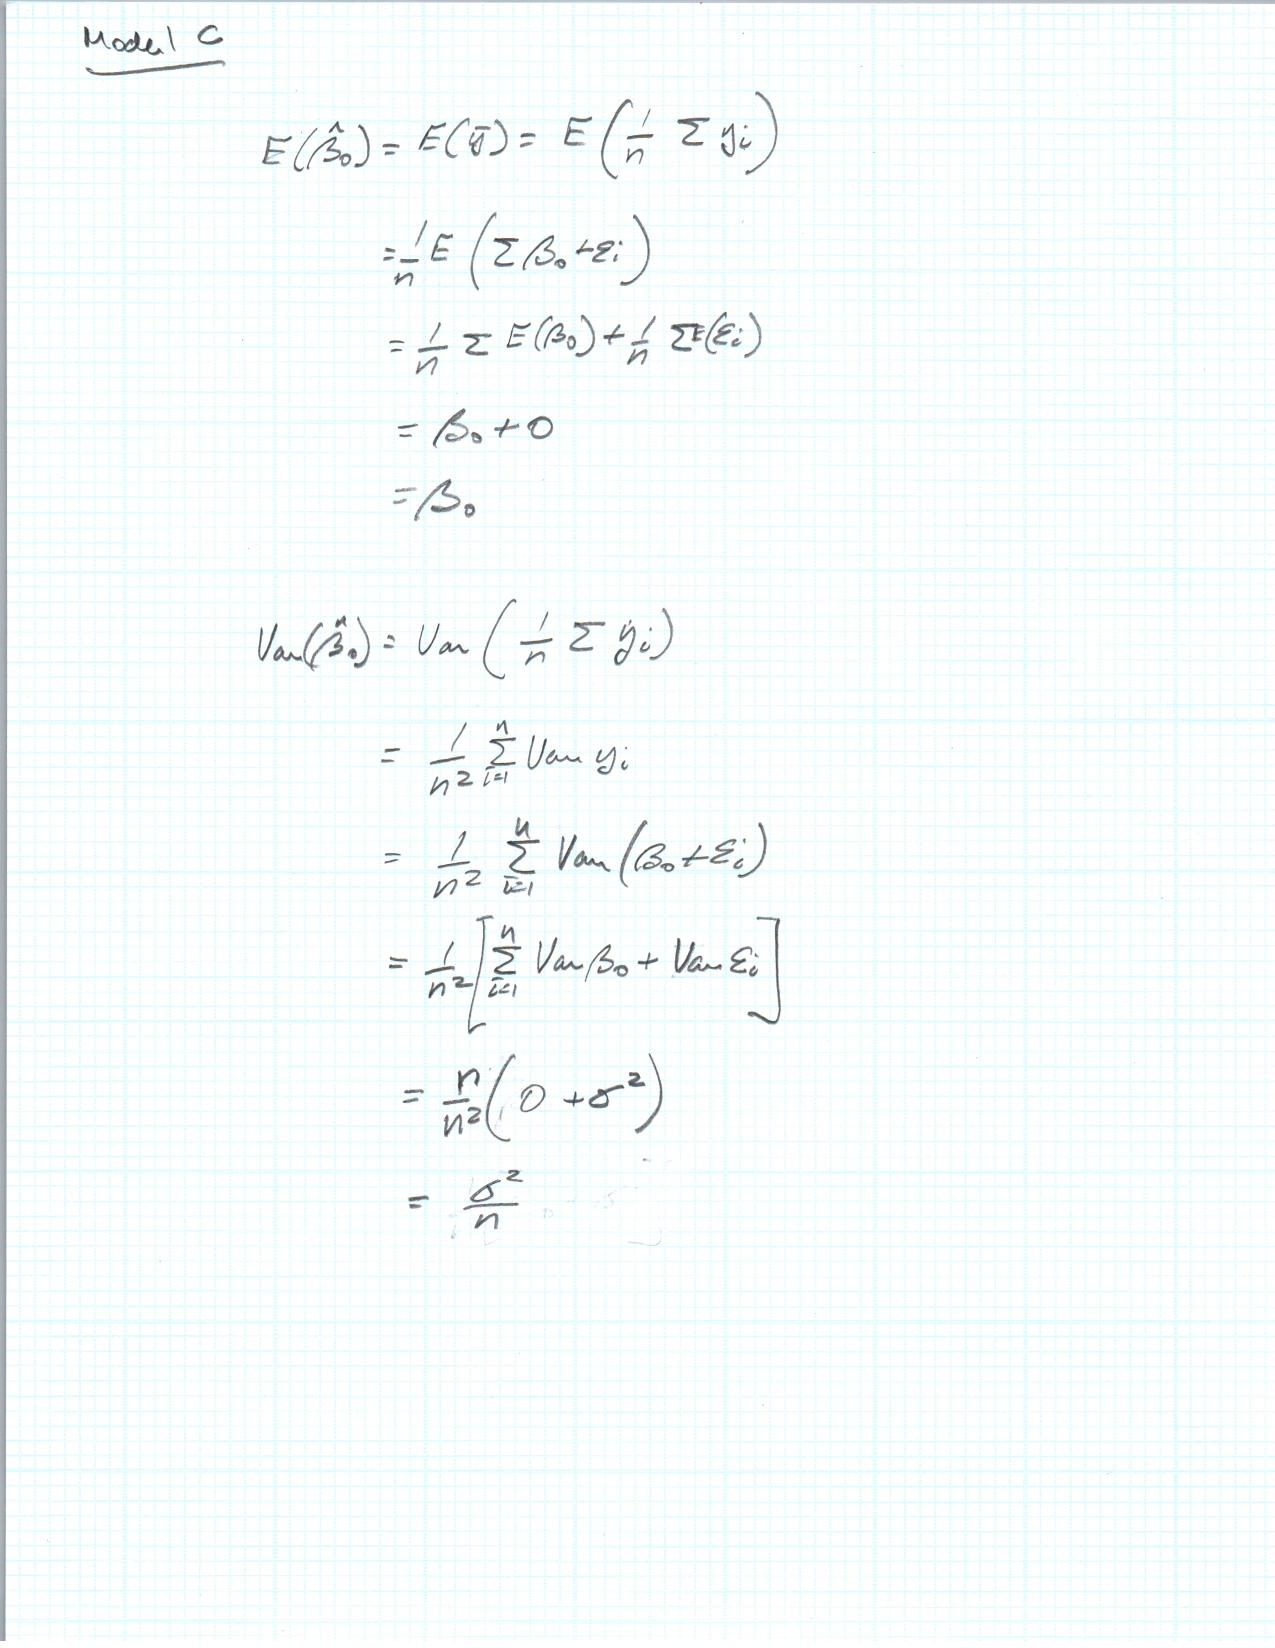 Model C
E(β̂₀) = E(ȳ) = E(1/n Σ yᵢ)
= 1/n E(Σ β₀ + εᵢ)
= 1/n Σ E(β₀) + 1/n Σ E(εᵢ)
= β₀ + 0
= β₀
Var(β̂₀) = Var(1/n Σ yᵢ)
= 1/n² Σⁿᵢ₌₁ Var yᵢ
= 1/n² Σⁿᵢ₌₁ Var(β₀ + εᵢ)
= 1/n² [Σⁿᵢ₌₁ Var β₀ + Var εᵢ]
= n/n² (0 + σ²)
= σ²/n